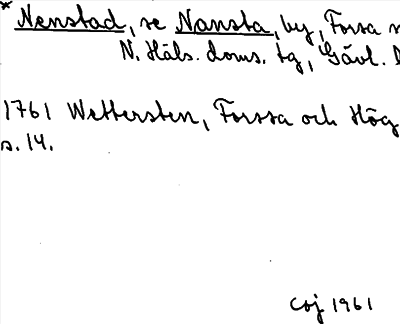 * Nenstad, se Nansta, by, Forsa
N. Häls. doms. tg, Gävl.
1761 Wettersten, Forssa och Hög
s. 14.
Coj 1961